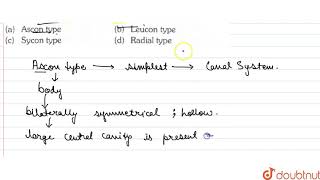 (a) Ascon type (b) Leucon type
(c) Sycon type (d) Radial type
Ascon type → simplest → Canal System.
↓
body
↓
bilaterally symmetrical ; hollow.
→ large central cavity is present
doubtnut